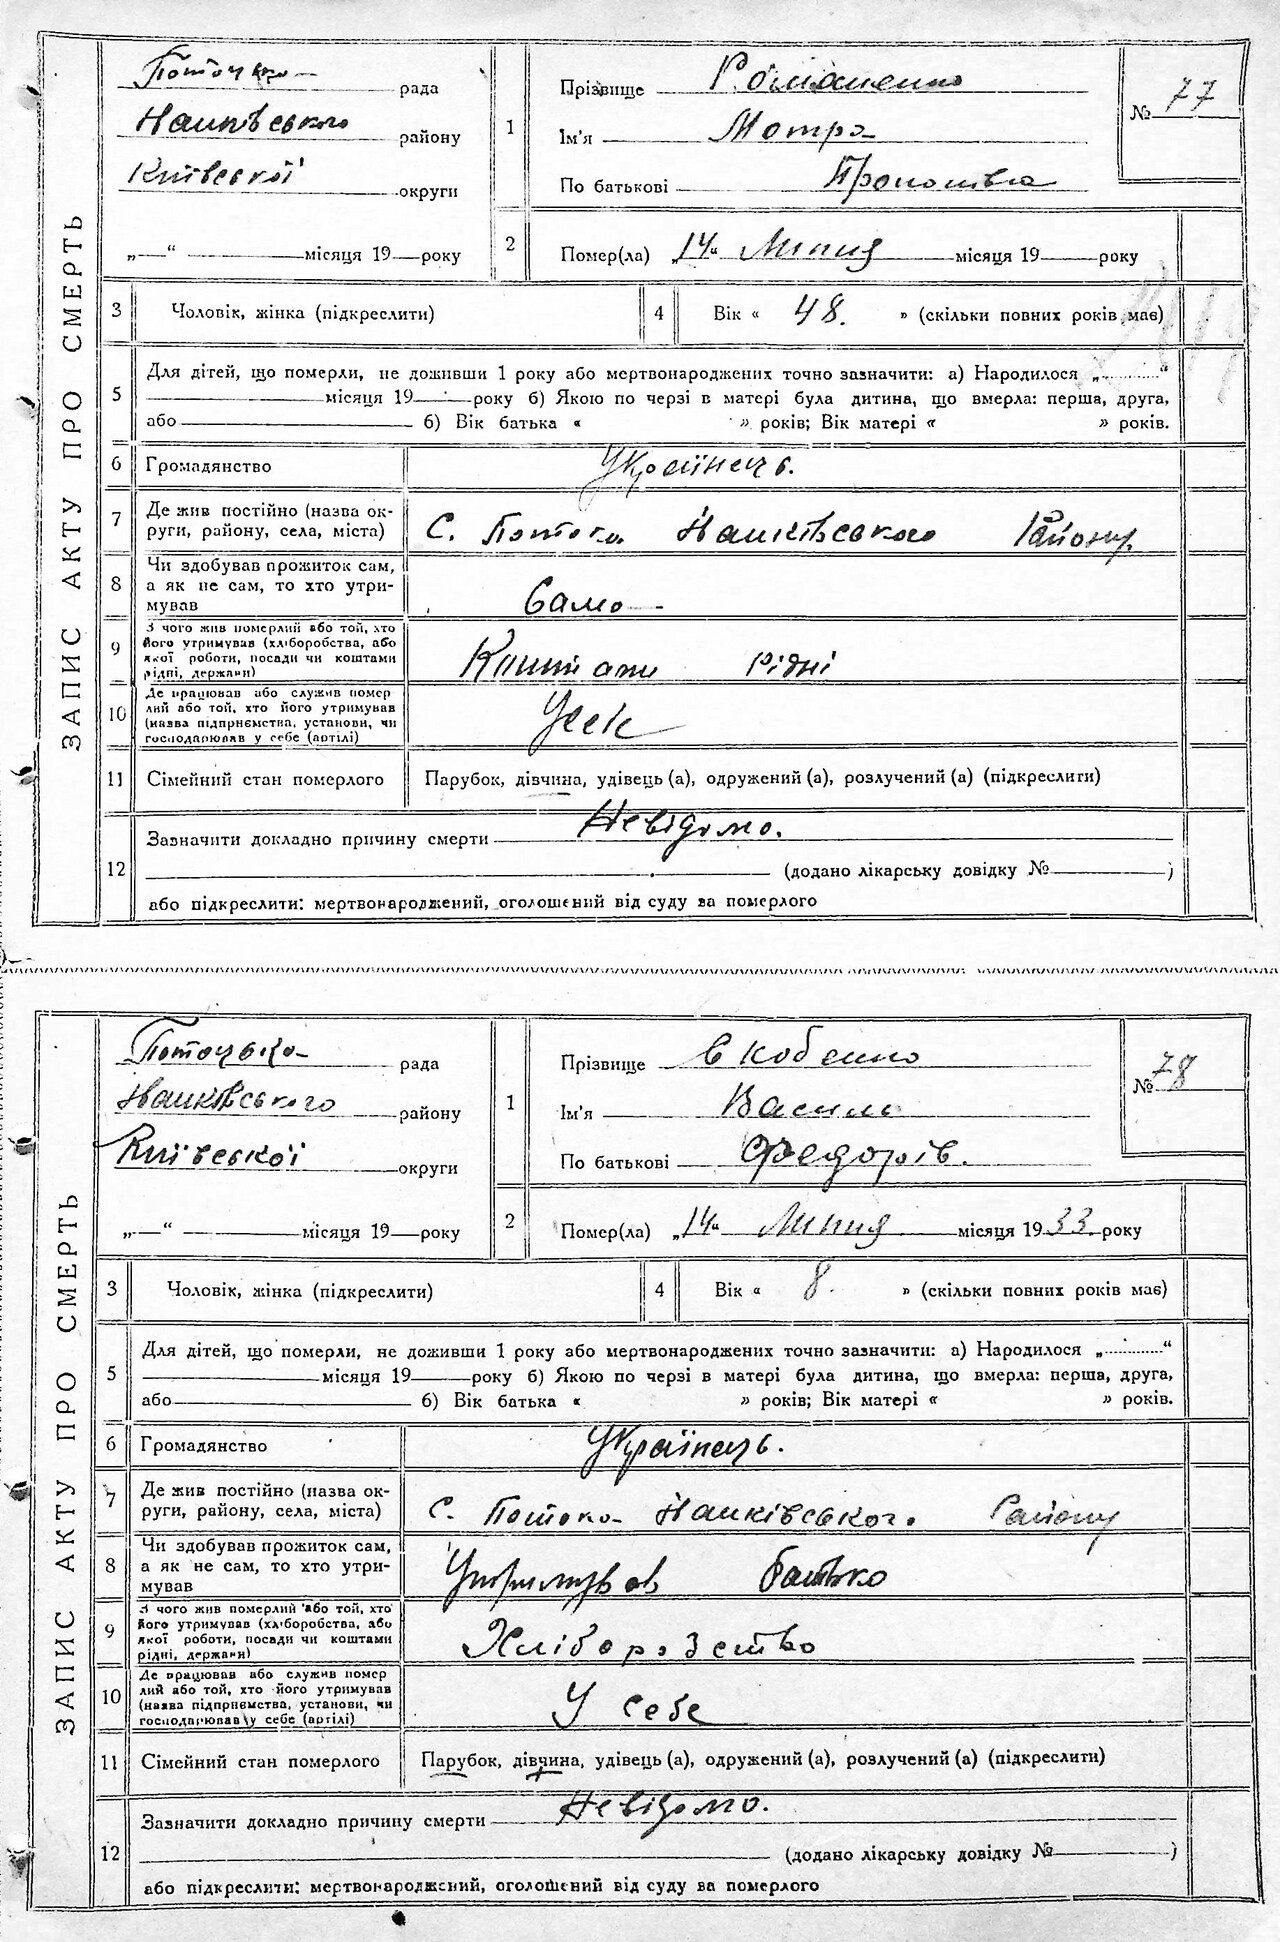 ЗАПИС АКТУ ПРО СМЕРТЬ
рада
району
Київської округи
„—“ місяця 19—року
1
Прізвище Романенко
Ім'я Мотря
По батькові
№ 77
2
Помер(ла) „14“ Липня місяця 19 року
3
Чоловік, жінка (підкреслити)
4
Вік « 48. » (скільки повних років має)
5
Для дітей, що померли, не доживши 1 року або мертвонароджених точно зазначити: а) Народилося „..........“
місяця 19 року б) Якою по черзі в матері була дитина, що вмерла: перша, друга,
або б) Вік батька « » років; Вік матері « » років.
6
Громадянство Українець.
7
Де жив постійно (назва ок-
руги, району, села, міста)
С. Потока Району
8
Чи здобував прожиток сам,
а як не сам, то хто утри-
мував
Само
9
З чого жив померлий або той, хто
його утримував (хліборобства, або
якої роботи, посади чи коштами
рідні, держави)
рідні
10
Де працював або служив помер
лий або той, хто його утримував
(назва підприємства, установи, чи
господарював у себе (артілі)
11
Сімейний стан померлого
Парубок, дівчина, удівець (а), одружений (а), розлучений (а) (підкреслити)
12
Зазначити докладно причину смерти Невідомо.
(додано лікарську довідку № )
або підкреслити: мертвонароджений, оголошений від суду за померлого
ЗАПИС АКТУ ПРО СМЕРТЬ
Потоцька рада
району
Київської округи
„—“ місяця 19—року
1
Прізвище Скобенко
Ім'я Василь
По батькові Федорів.
№ 78
2
Помер(ла) „14“ Липня місяця 1933 року
3
Чоловік, жінка (підкреслити)
4
Вік « 8. » (скільки повних років має)
5
Для дітей, що померли, не доживши 1 року або мертвонароджених точно зазначити: а) Народилося „..........“
місяця 19 року б) Якою по черзі в матері була дитина, що вмерла: перша, друга,
або б) Вік батька « » років; Вік матері « » років.
6
Громадянство Українець.
7
Де жив постійно (назва ок-
руги, району, села, міста)
С. Потока Району
8
Чи здобував прожиток сам,
а як не сам, то хто утри-
мував
Утримував батько
9
З чого жив померлий або той, хто
його утримував (хліборобства, або
якої роботи, посади чи коштами
рідні, держави)
10
Де працював або служив помер
лий або той, хто його утримував
(назва підприємства, установи, чи
господарював у себе (артілі)
У себе
11
Сімейний стан померлого
Парубок, дівчина, удівець (а), одружений (а), розлучений (а) (підкреслити)
12
Зазначити докладно причину смерти Невідомо.
(додано лікарську довідку № )
або підкреслити: мертвонароджений, оголошений від суду за померлого